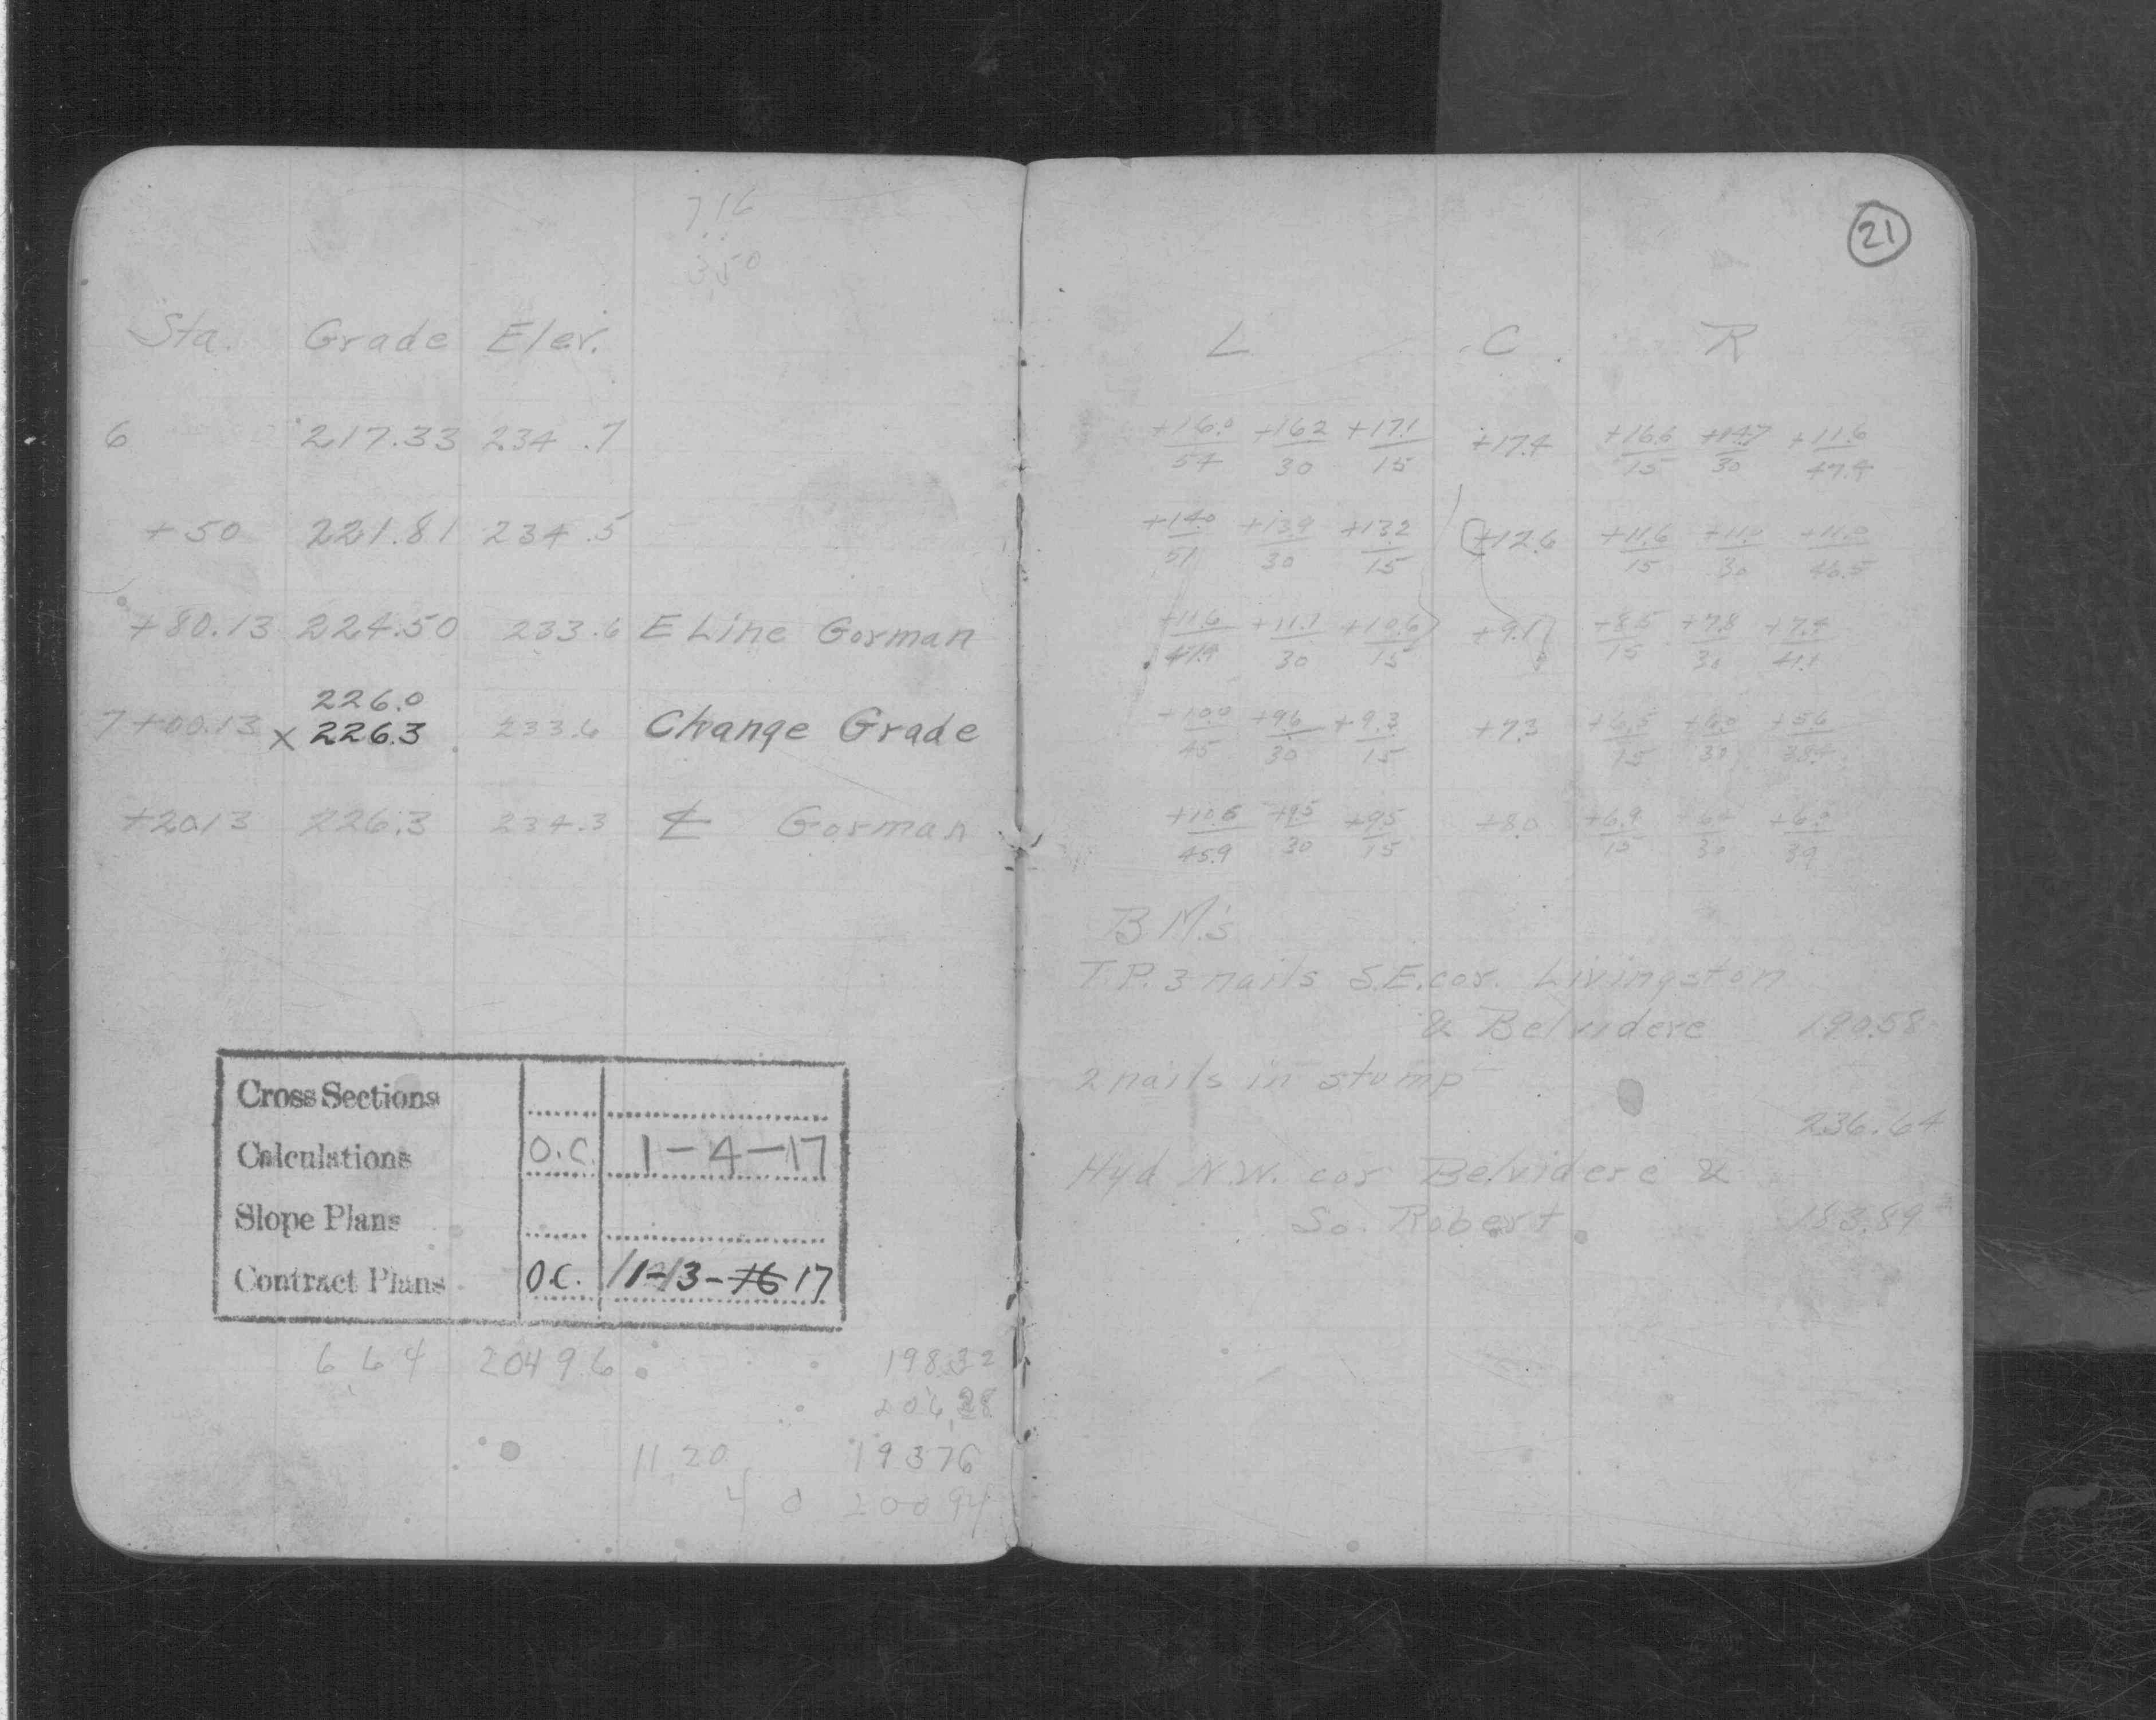 7.16
3.50
Sta. Grade Elev.
6 217.33 234.7
+50 221.81 234.5
+80.13 224.50 233.6 E Line Gorman
226.0
7+00.13 x 226.3 233.6 Change Grade
+20.13 226.3 234.3 ℄ Gorman
Cross Sections
Calculations O.C. 1-4-17
Slope Plans
Contract Plans O.C. 11-13-16 17
6.64 204.96 198.32
11.20 193.76
4 0 200 94
21
L C R
+16.0 +16.2 +17.1 +17.4 +16.6 +14.7 +11.6
54 30 15 15 30 47.4
+14.0 +13.9 +13.2 +12.6 +11.6 +11.0 +11.0
51 30 15 15 30 46.5
+11.6 +11.1 +10.6 +9.1 +8.5 +7.8 +7.4
47.4 30 15 15 30 41.1
+10.0 +9.6 +9.3 +7.3 +6.5 +6.0 +5.6
45 30 15 15 30 38.4
+10.6 +9.5 +9.5 +8.0 +6.9 +6.4 +6.0
45.9 30 15 15 30 39
B M.'s
T.P. 3 nails S.E. cor. Livingston
& Belvidere 190.58
2 nails in stump
236.64
Hyd N.W. cor Belvidere &
So. Robert 183.89